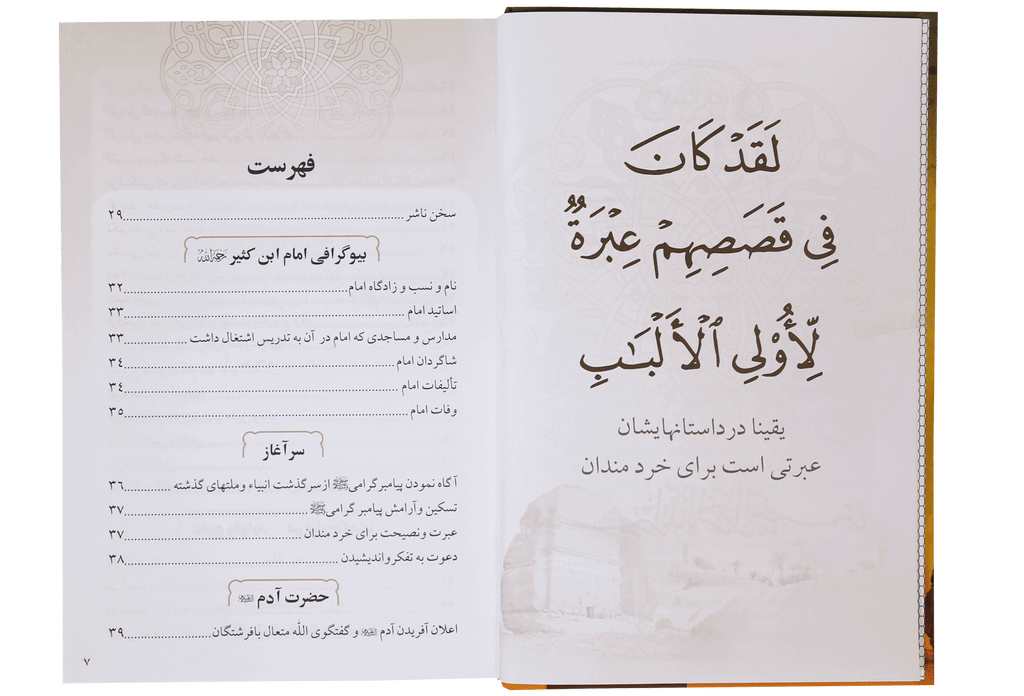 لَقَدْ كَانَ
فِي قَصَصِهِمْ عِبْرَةٌ
لِّأُوْلِي ٱلْأَلْبَـٰبِ
یقینا در داستانهایشان
عبرتی است برای خرد مندان
فهرست
سخن ناشر ..... ۲۹
بیوگرافی امام ابن کثیر رَحِمَهُ ٱللَّهُ
نام و نسب و زادگاه امام ..... ۳۲
اساتید امام ..... ۳۳
مدارس و مساجدی که امام در آن به تدریس اشتغال داشت ..... ۳۳
شاگردان امام ..... ۳٤
تألیفات امام ..... ۳٤
وفات امام ..... ۳۵
سرآغاز
آگاه نمودن پیامبر گرامی ﷺ از سرگذشت انبیاء وملتهای گذشته ..... ۳۶
تسکین وآرامش پیامبر گرامی ﷺ ..... ۳۷
عبرت ونصیحت برای خرد مندان ..... ۳۷
دعوت به تفکر واندیشیدن ..... ۳۸
حضرت آدم
اعلان آفریدن آدم و گفتگوی الله متعال بافرشتگان ..... ۳۹
۷